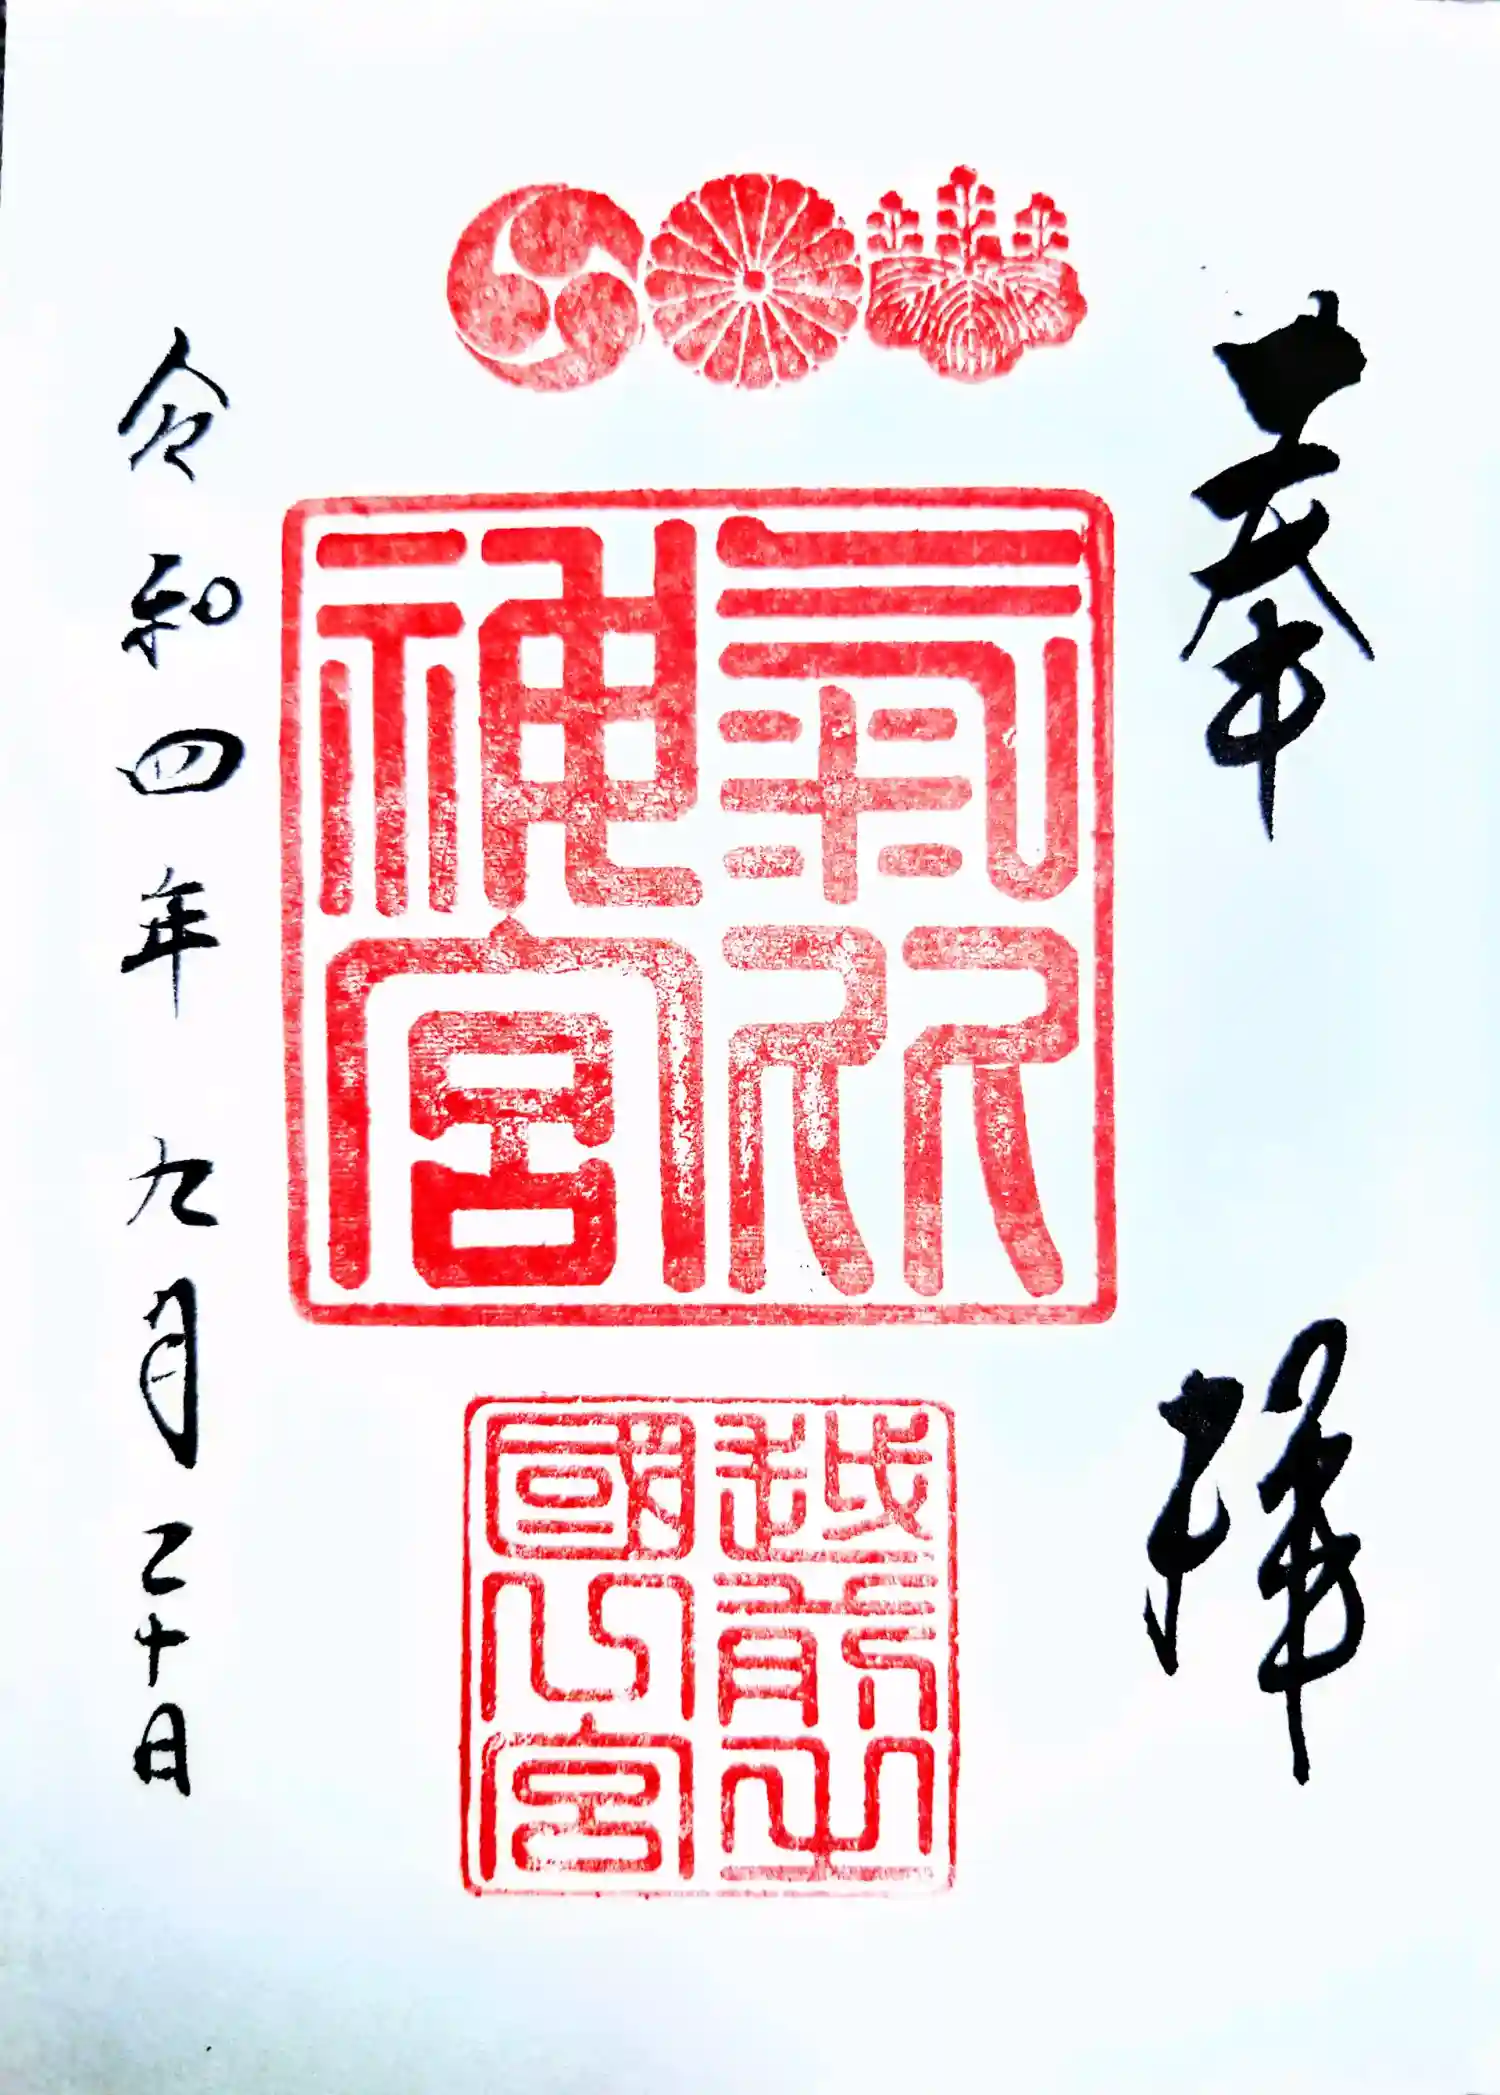 奉拝
氣比
神宮
越前之
國一宮
令和四年九月二十日